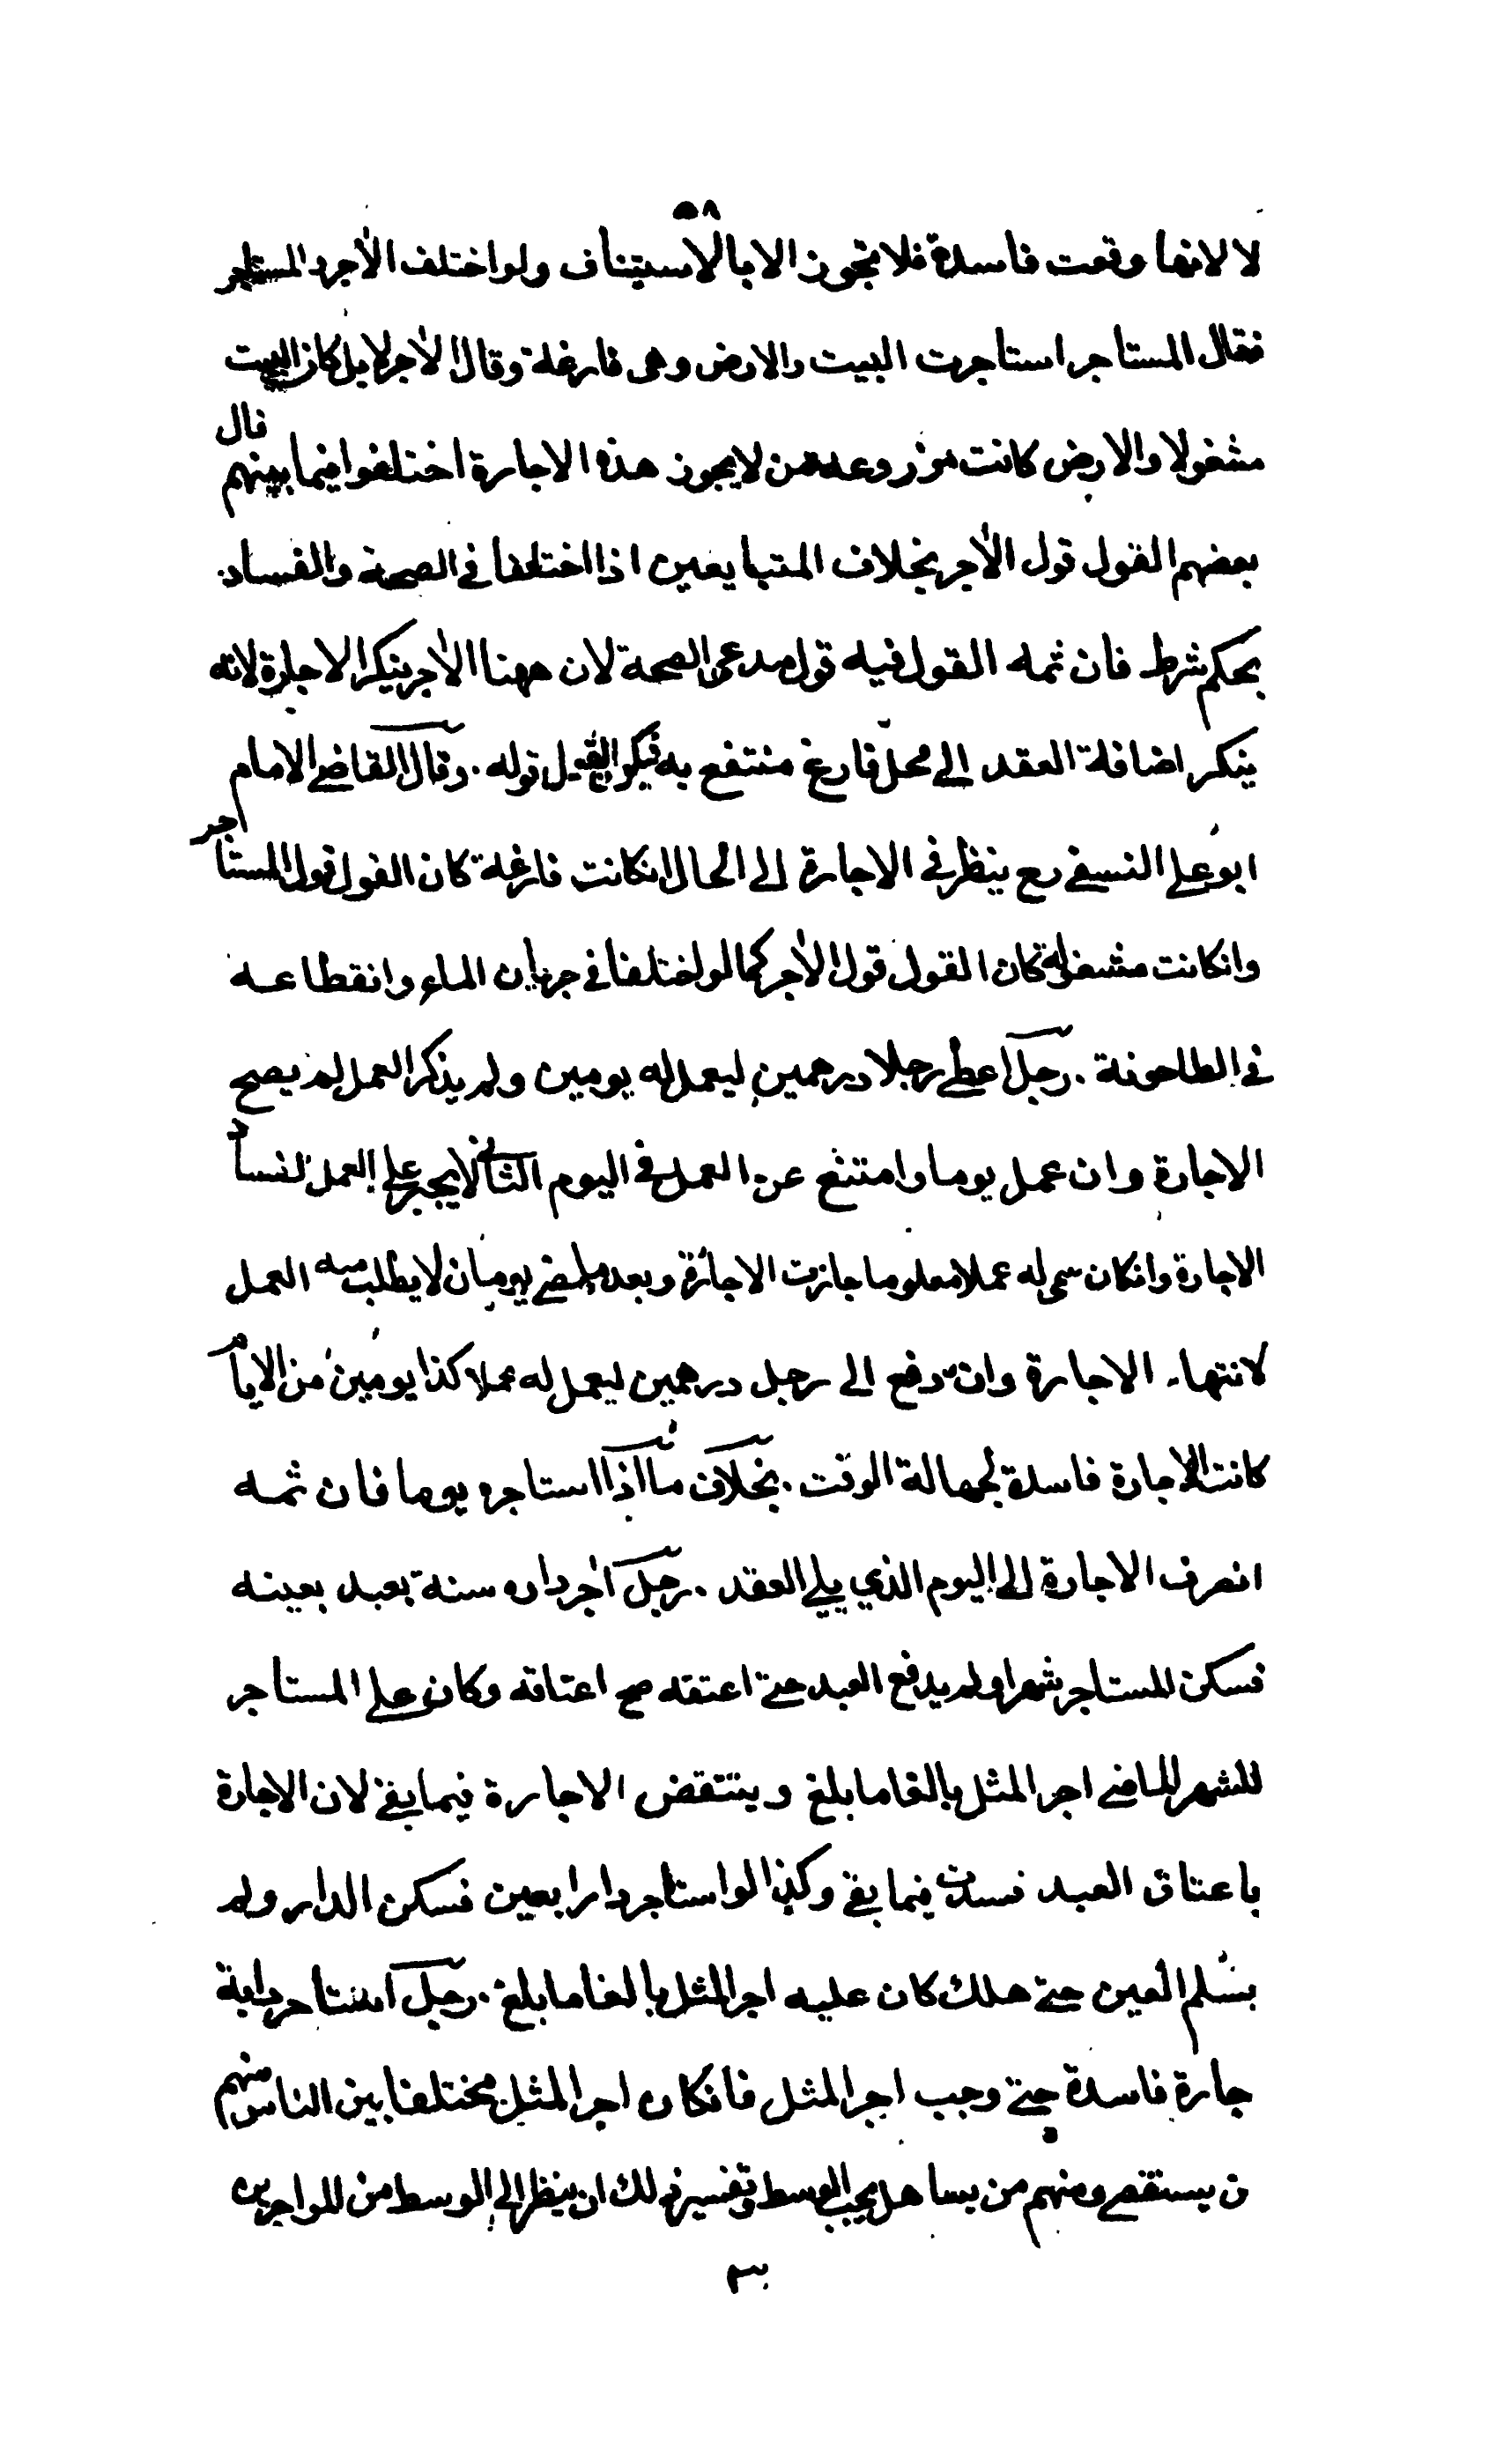 ٥٨
لا لانها وقعت فاسدة فلا تجوز الا بالاستيناف ولو اختلف الآجر والمستاجر
فقال المستاجر استاجرت البيت والارض وهى فارغة وقال الآجر لا بل كان البيت
مشغولا والارض كانت مزروعة من لا يجوز هذه الاجارة اختلفوا فيما بينهم قال
بعضهم القول قول الآجر بخلاف المتبايعين اذا اختلفا في الصحة والفساد
بحكم شرط فان ثمه القول فيه قول مدعى الصحة لان ههنا الآجر ينكر الاجارة لانه
ينكر اضافة العقد الى محل فارغ منتفع به فيكون القول قوله . وقال القاضي الامام
ابو علي النسفي رع ينظر في الاجارة الى الحال ان كانت فارغة كان القول قول المستاجر
وانكانت مشغولة كان القول قول الآجر كما لو اختلفا في جريان الماء وانقطاعه
في الطاحونة . رجل اعطى رجلا درهمين ليعمل له يومين ولم يذكر العمل لم يصح
الاجارة وان عمل يوما وامتنع عن العمل في اليوم الثاني لا يجبر على العمل لفساد
الاجارة وانكان سمى له عملا معلوما جازت الاجارة وبعد ما مضى يومان لا يطلب منه العمل
لانتهاء الاجارة وان دفع الى رجل درهمين ليعمل له عملا كذا يومين من الايام
كانت الاجارة فاسدة لجهالة الوقت . بخلاف ما اذا استاجره يوما فان ثمه
انصرف الاجارة الى اليوم الذي يلي العقد . رجل آجر داره سنة بعبد بعينه
فسكن المستاجر شهرا ولم يدفع العبد حتى اعتقه صح اعتاقه وكان على المستاجر
للشهر الماضي اجر المثل بالغا ما بلغ وينتقض الاجارة فيما بقي لان الاجارة
باعتاق العبد فسدت فيما بقي وكذا لو استاجر دارا بعين فسكن الدار ولم
يسلم العين حتى هلك كان عليه اجر المثل بالغا ما بلغ . رجل استاجر دابة
جارة فاسدة حتى وجب اجر المثل فانكان اجر المثل مختلفا بين الناس منهم
ن يستقصي ومنهم من يساهل يجب الوسط وتفسير ذلك ان ينظر الى الوسط من المواجرين